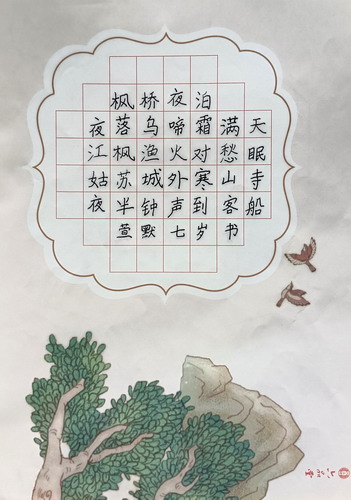 枫桥夜泊
夜落乌啼霜满天
江枫渔火对愁眠
姑苏城外寒山寺
夜半钟声到客船
萱默七岁书